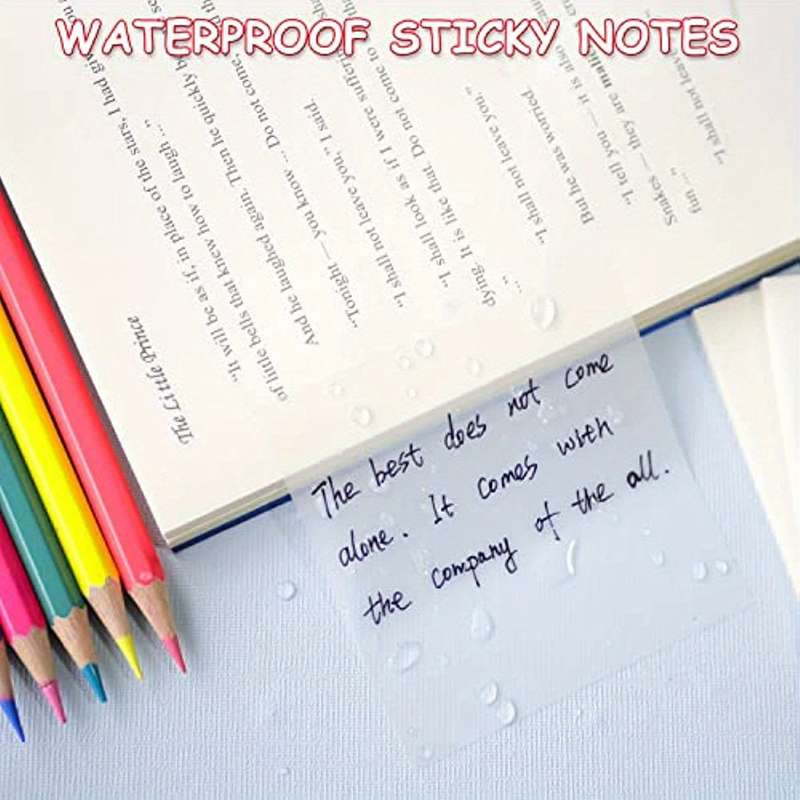 WATERPROOF STICKY NOTES
The Little Prince
"It will be as if, in place of the stars, I had give
of little bells that knew how to laugh ..."
And he laughed again. Then he quickly b
"Tonight — you know ... Do not come
"I shall not leave you," I said.
"I shall look as if I were suffering
dying. It is like that. Do not come to
"I shall not leave you."
But he was worried.
"I tell you — it is also
Snakes — they are
fun ..."
"I shall not leave
The best does not come
alone. It comes with
the company of the all.